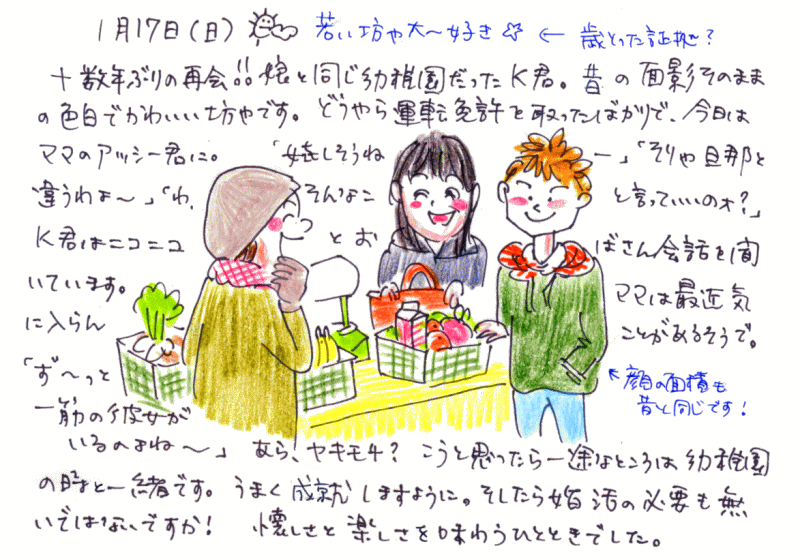 1月17日(日) 若い坊や大～好き☆ ← 歳とった証拠?
十数年ぶりの再会!! 娘と同じ幼稚園だったK君。昔の面影そのまま
の色白でかわいい坊やです。どうやら運転免許を取ったばかりで、今日は
ママのアッシー君に。「嬉しそうねー」「そりゃ旦那と
違うわよ～」「わ、そんなこと言っていいのォ?」
K君はニコニコとおばさん会話を聞
いています。ママは最近気
に入らんことがあるそうで。
「ず～っと
一筋の彼女が
いるのよね～」あら、ヤキモチ? こうと思ったら一途なところは幼稚園
の時と一緒です。うまく成就しますように。そしたら婚活の必要も無
いではないですか! 懐しさと楽しさを味わうひとときでした。
←顔の面積も
昔と同じです!